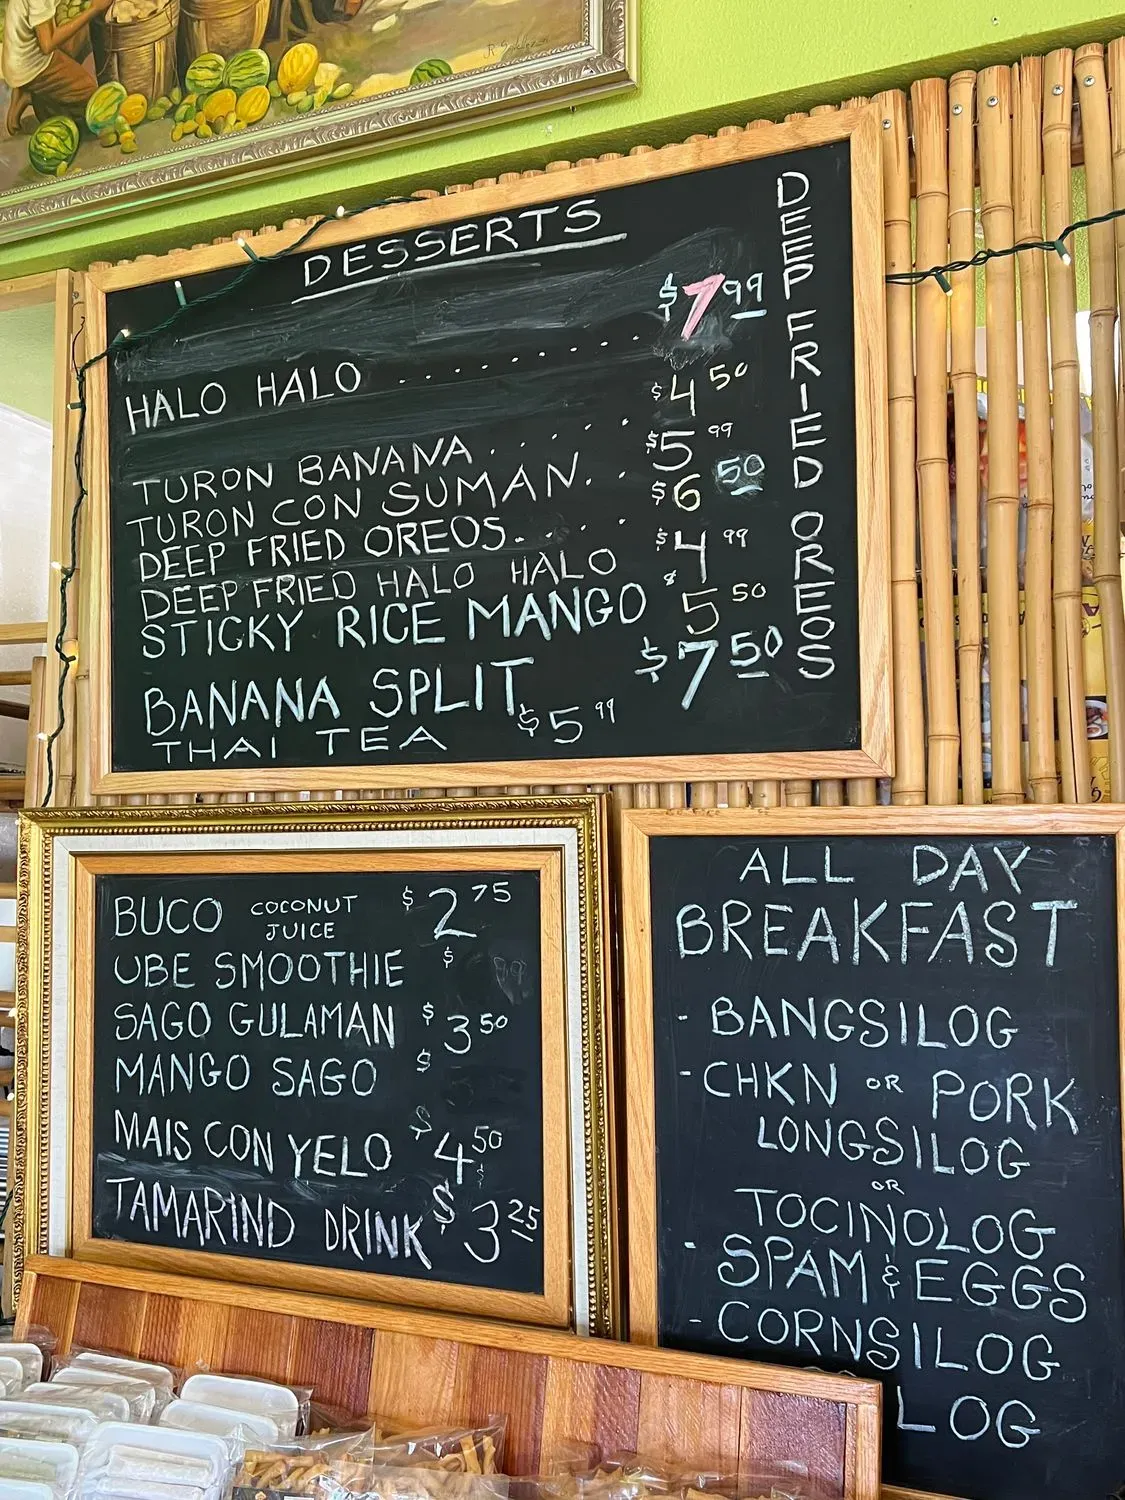 DESSERTS
HALO HALO . . . . . . . . . . $7 99
TURON BANANA . . . . . $4 50
TURON CON SUMAN. . . $5 99
DEEP FRIED OREOS. . . . . $6 50
DEEP FRIED HALO HALO $4 99
STICKY RICE MANGO $5 50
BANANA SPLIT $7 50
THAI TEA $5 99
DEEP FRIED OREOS
BUCO COCONUT JUICE $2 75
UBE SMOOTHIE $
SAGO GULAMAN $3 50
MANGO SAGO $
MAIS CON YELO $4 50
TAMARIND DRINK $3 25
ALL DAY
BREAKFAST
- BANGSILOG
- CHKN OR PORK
LONGSILOG
OR
TOCINOLOG
- SPAM & EGGS
- CORNSILOG
LOG